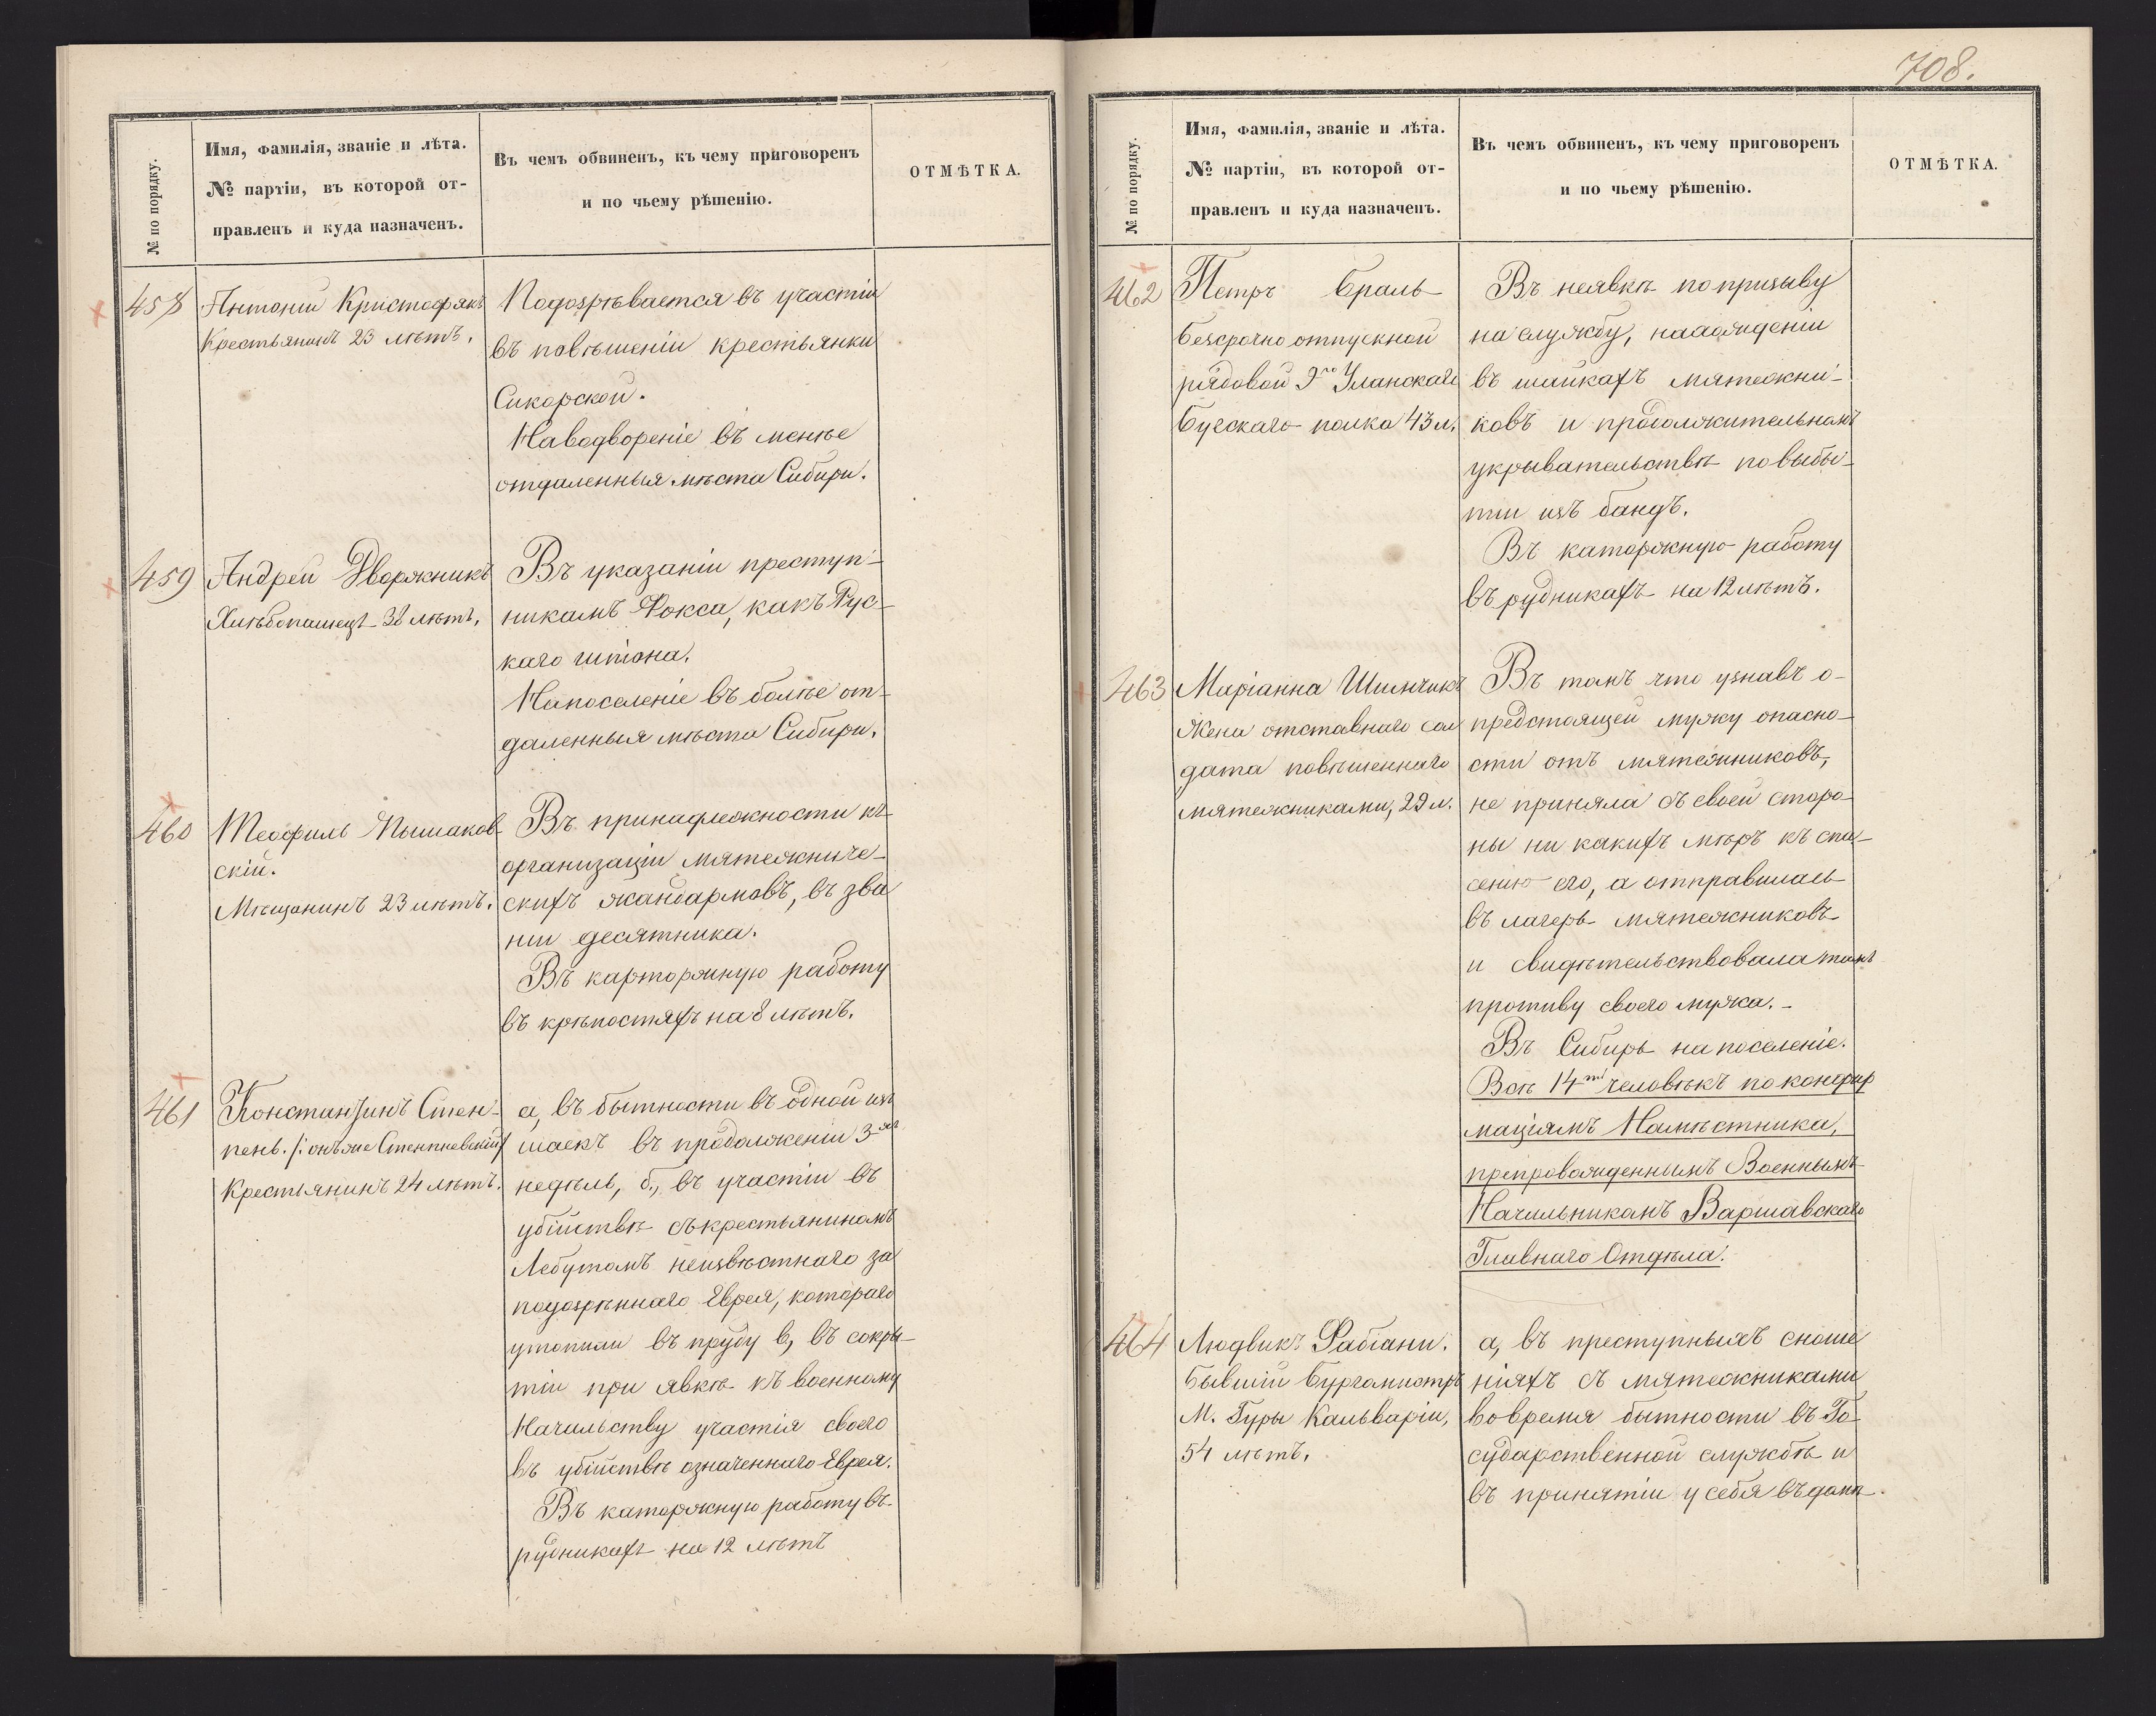 708.
№ по порядку.
Имя, фамилія, званіе и лѣта.
№ партіи, въ которой от-
правленъ и куда назначенъ.
Въ чемъ обвиненъ, къ чему приговоренъ
и по чьему рѣшенію.
ОТМѢТКА.
458
Антоній Кристофякъ
Крестьянинъ 23 лѣтъ.
Подозрѣвается въ участіи
въ повѣшеніи крестьянки
Сикорской.
На водвореніе въ менѣе
отдаленныя мѣста Сибири.
459
Андрей Дворжникъ
Хлѣбопашецъ 38 лѣтъ.
Въ указаніи преступ-
никамъ Фокса, какъ Рус-
каго шпіона.
На поселеніе въ болѣе от-
даленныя мѣста Сибири.
460
Теофиль Пышаков-
скій.
Мѣщанинъ 23 лѣтъ.
Въ принадлежности къ
организаціи мятежниче-
скихъ жандармовъ, въ зва
ніи десятника.
Въ карторжную работу
въ крѣпостяхъ на 8 лѣтъ.
461
Константинъ Стен-
пень. /: онъ же Стенпневскій /
Крестьянинъ 24 лѣтъ.
а, въ бытности въ одной изъ
шаекъ въ продолженіи 3-хъ
недѣль, б., въ участіи въ
убійствѣ съ крестьяниномъ
Лебутомъ неизвѣстнаго за
подозрѣннаго Еврея, котораго
утопили въ пруду в, въ сокры-
тіи при явкѣ къ военному
Начальству участія своего
въ убійствѣ означеннаго Еврея.
Въ каторжную работу въ
рудникахъ на 12 лѣтъ
№ по порядку.
Имя, фамилія, званіе и лѣта.
№ партіи, въ которой от-
правленъ и куда назначенъ.
Въ чемъ обвиненъ, къ чему приговоренъ
и по чьему рѣшенію.
ОТМѢТКА.
462
Петръ Браль
безсрочно отпускной
рядовой 9го Уланскаго
Бугскаго полка 43 л.
Въ неявкѣ по призыву
на службу, нахожденіи
въ шайкахъ мятежни-
ковъ и продолжительномъ
укрывательствѣ по выбы-
тіи изъ бандъ.
Въ каторжную работу
въ рудникахъ на 12 лѣтъ.
463
Маріанна Шимчикъ
Жена отставнаго сол
дата повѣшеннаго
мятежниками, 29 л.
Въ томъ что узнавъ о-
предстоящей мужу опасно-
сти отъ мятежниковъ,
не приняла съ своей сторо-
ны ни какихъ мѣръ къ спа-
сенію его, а отправилась
въ лагерь мятежниковъ
и свидѣтельствовала тамъ
противу своего мужа. -
Въ Сибирь на поселеніе.
Всѣ 14ть человѣкъ по конфир
маціямъ Намѣстника,
препровожденнымъ Военнымъ
Начальникомъ Варшавскаго
Главнаго Отдѣла.
464
Людвикъ Фабіани.
Бывшій Бургомистръ
М. Гуры Кальваріи,
54 лѣтъ.
а, въ преступныхъ сноше
ніяхъ съ мятежниками
во время бытности въ Го-
сударственной службѣ и
въ принятіи у себя въ домѣ